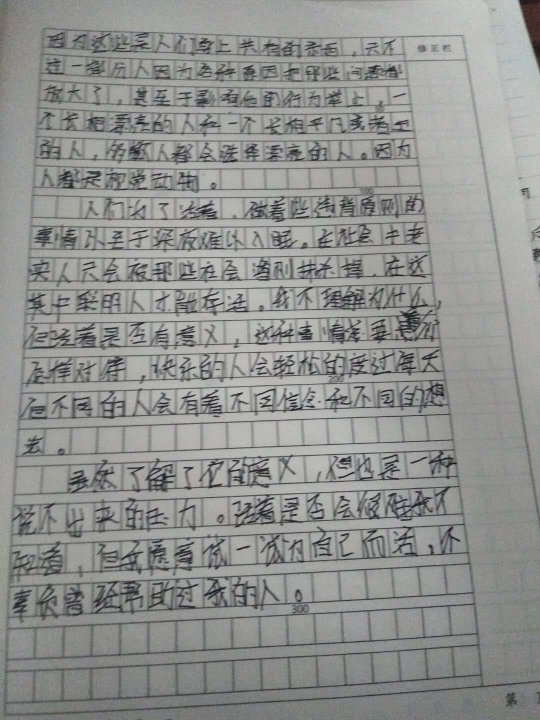 因为这些是人们身上共有的东西，只不
修正栏
过一部分人因为各种原因把那些问题都
放大了，甚至于影响他的行为举止。一
个长相漂亮的人和一个长相平凡或者丑
的人，多数人都会选择漂亮的人。因为
人都是视觉动物。
100
人们为了活着，做着些违背原则的
事情以至于深夜难以入眠。在社会中老
实人只会被那些社会潜则抹杀掉，在这
其中聪明人才能存活。我不理解为什么，
但活着是否有意义，这种事情是要看你
怎样对待，快乐的人会轻松的度过每天
200
而不同的人会有着不同信念和不同的想
法。
虽然了解了它的意义，但也是一种
说不出来的压力。活着是否会很难我不
知道，但我愿意试一试为自己而活，不
辜负曾经帮助过我的人。
300
第